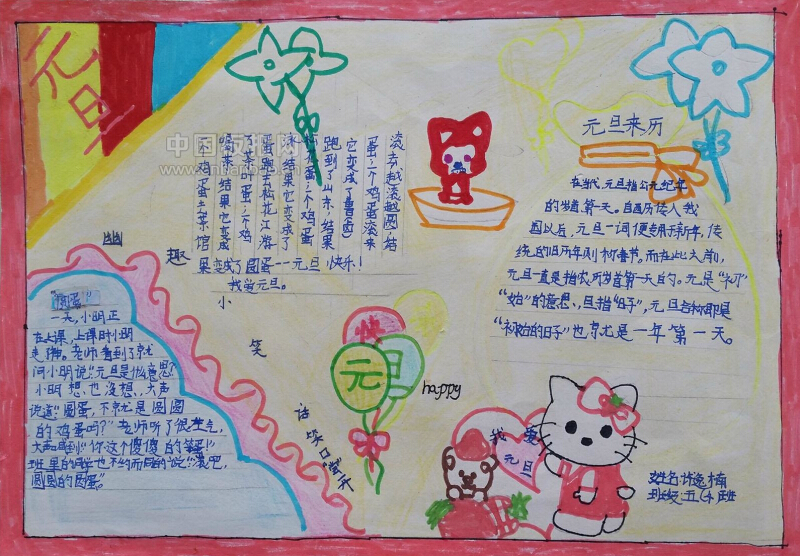 元旦
中国
元旦来历
在当代,元旦指公元纪年
的岁首第一天。自西历传入我
国以后,元旦一词便专用于新年,传
统的旧历年则称春节。而在此之前,
元旦一直是指农历岁首第一天的。元是“初”
“始”的意思、旦指“日子”,元旦合称即是
“初始的日子”也就是一年第一天。
一个鸡蛋去茶馆
喝茶,结果它变成
了茶叶蛋;一个鸡
蛋跑去松花江游
泳,结果它变成了
松花蛋;一个鸡蛋
跑到了山东,结果
它变成了鲁(卤)
蛋;一个鸡蛋滚来
滚去越滚越圆,结
果变成了圆蛋——元旦快乐!
我爱元旦。
幽
趣
小
笑
话
笑口常开
“圆蛋”
一天,小明正
在上课,上课时小明
走神。老师看到了就
问小明说:“元旦是什么意思?”
小明想也没想,大声
说道:“圆蛋,不就是圆圆
的鸡蛋吗?”老师听了很生气,
大声喊到:“你这个傻傻的笨蛋!”
班里的同学也不约而同的说:“滚吧,
圆圆的圆蛋”。
快
元旦
happy
我爱
元旦
姓名:许逸楠
班级:五(4)班